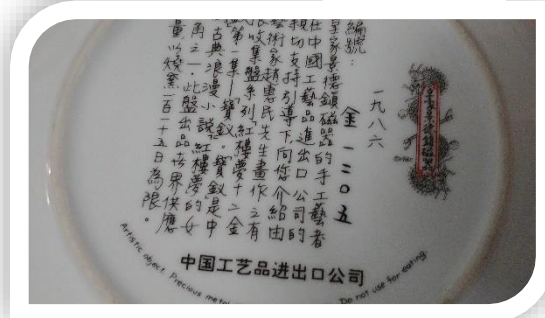 一九八六
編號：
金一二〇五
皇家景德鎮磁器的手工藝者
在中國工藝品進出口公司的
親切支持引導下，向您介紹由
藝術家趙惠民先生畫作之有
限收集盤系列「紅樓夢十二金
第一集—「寶釵」。「寶釵」是中
古典浪漫小說「紅樓夢」的女
角之一。此盤出品世界供應
量以燒窯一百一十五日為限。
中国工艺品进出口公司
Artistic object. Precious Do not use for eating.